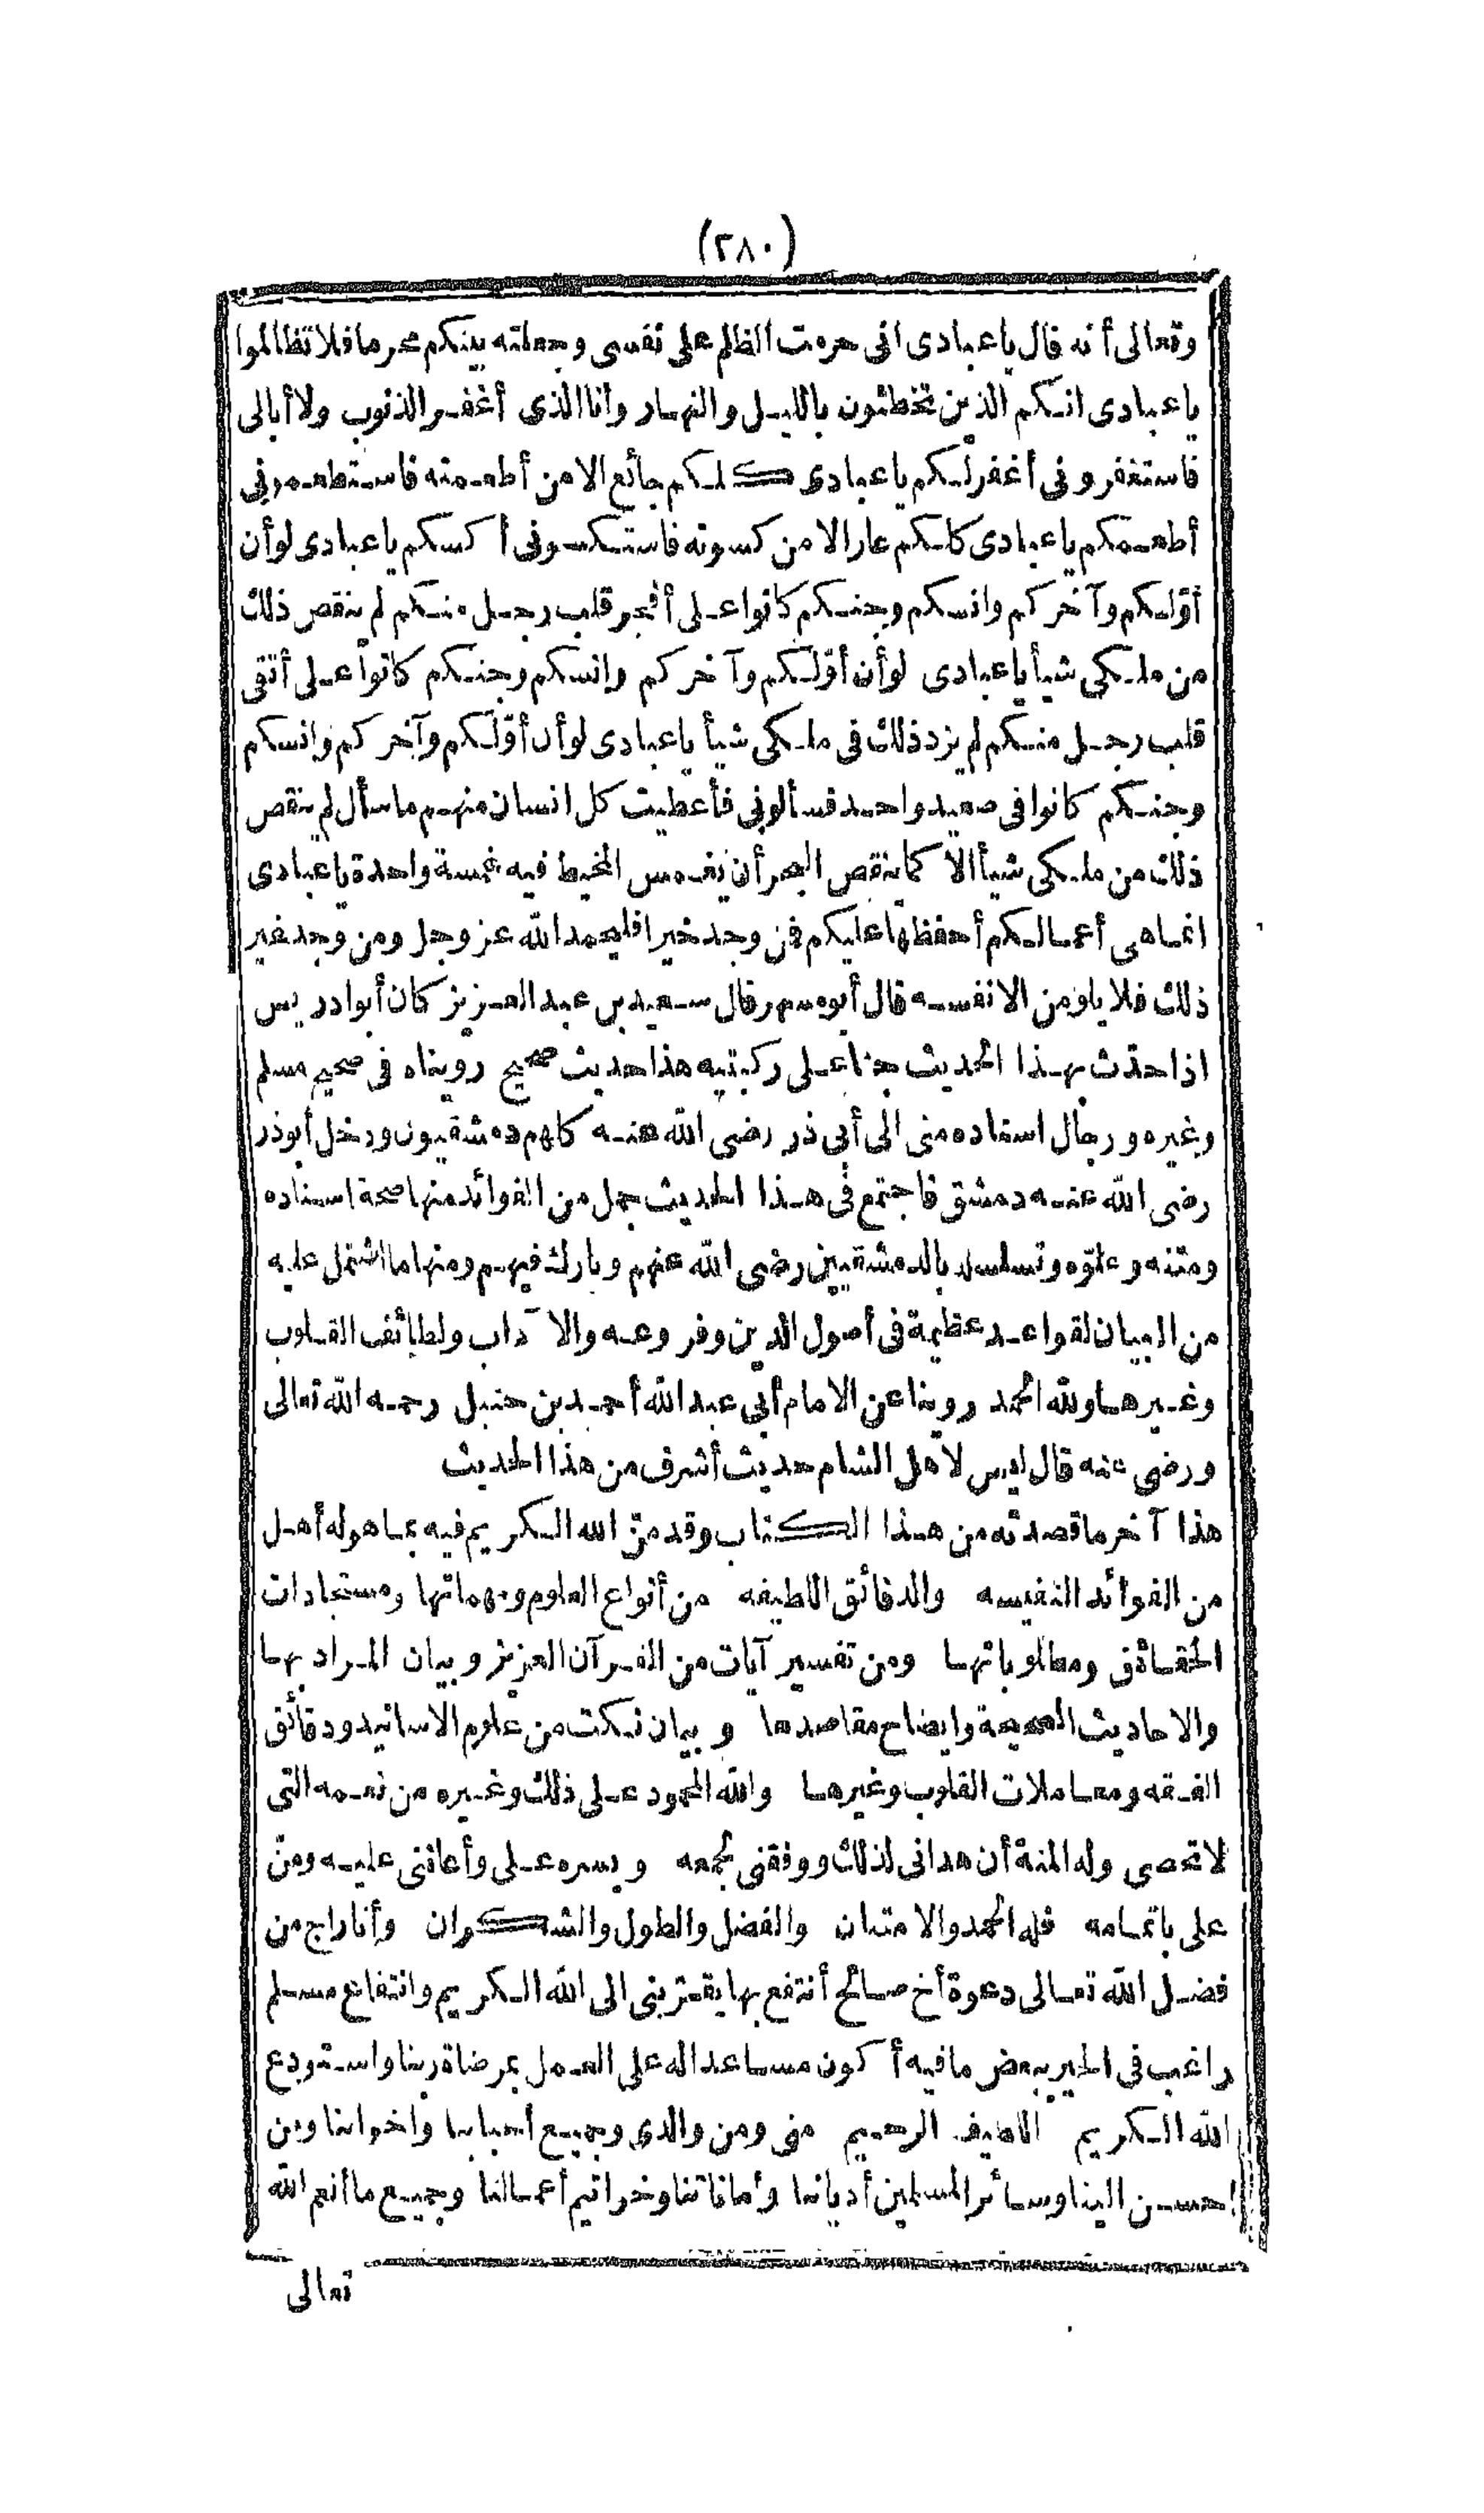 (٢٨٠)
وتعالى أنه قال ياعبادى انى حرمت الظلم على نفسى وجعلته بينكم محرما فلا تظالموا
ياعبادى انكم الذين تخطئون بالليل والنهار وأنا الذى أغفر الذنوب ولا أبالى
فاستغفرونى أغفرلكم ياعبادى كلكم جائع الا من أطعمته فاستطعمونى
أطعمكم ياعبادى كلكم عار الا من كسوته فاستكسونى أكسكم ياعبادى لوأن
أوّلكم وآخركم وانسكم وجنكم كانوا على أفجر قلب رجل منكم لم ينقص ذلك
من ملكى شيأ ياعبادى لوأن أوّلكم وآخركم وانسكم وجنكم كانوا على أتقى
قلب رجل منكم لم يزد ذلك فى ملكى شيأ ياعبادى لوأن أوّلكم وآخركم وانسكم
وجنكم كانوا فى صعيد واحد فسألونى فأعطيت كل انسان منهم ماسأل لم ينقص
ذلك من ملكى شيأ الا كما ينقص البحر أن يغمس المخيط فيه غمسة واحدة ياعبادى
انماهى أعمالكم أحفظها عليكم فمن وجد خيرا فليحمد الله عز وجل ومن وجد غير
ذلك فلا يلومن الا نفسه قال أبومسهر قال سعيد بن عبد العزيز كان أبوادريس
اذا حدّث بهذا الحديث جثا على ركبتيه هذا حديث صحيح رويناه فى صحيح مسلم
وغيره ورجال اسناده منى الى أبى ذر رضى الله عنه كلهم دمشقيون ودخل أبوذر
رضى الله عنه دمشق فاجتمع فى هذا الحديث جمل من الفوائد منها صحة اسناده
ومتنه وعلوّه وتسلسله بالدمشقيين رضى الله عنهم وبارك فيهم ومنها ما اشتمل عليه
من البيان لقواعد عظيمة فى أصول الدين وفروعه والآداب ولطائف القلوب
وغيرها ولله الحمد روينا عن الامام أبى عبد الله أحمد بن حنبل رحمه الله تعالى
ورضى عنه قال ليس لاهل الشام حديث أشرف من هذا الحديث
هذا آخر ماقصدته من هذا الكتاب وقد منّ الله الكريم فيه بماهوله أهل
من الفوائد النفيسه والدقائق اللطيفه من أنواع العلوم ومهماتها ومستجادات
الحقائق ومطلوباتها ومن تفسير آيات من القرآن العزيز وبيان المراد بها
والاحاديث الصحيحة وايضاح مقاصدها وبيان نكت من علوم الاسانيد ودقائق
الفقه ومعاملات القلوب وغيرها والله المحمود على ذلك وغيره من نعمه التى
لاتحصى وله المنة أن هدانى لذلك ووفقنى لجمعه ويسره على وأعاننى عليه ومنّ
على باتمامه فله الحمد والامتنان والفضل والطول والشكران وأنا راج من
فضل الله تعالى دعوة أخ صالح أنتفع بها يقتربنى الى الله الكريم وانتفاع مسلم
راغب فى الخير ببعض مافيه أكون مساعدا له على العمل بمرضاة ربنا واستودع
الله الكريم اللطيف الرحيم منى ومن والدى وجميع أحبابنا واخواننا ومن
احسن الينا وسائر المسلمين أدياننا وأماناتنا وخواتيم أعمالنا وجميع ما أنعم الله
تعالى